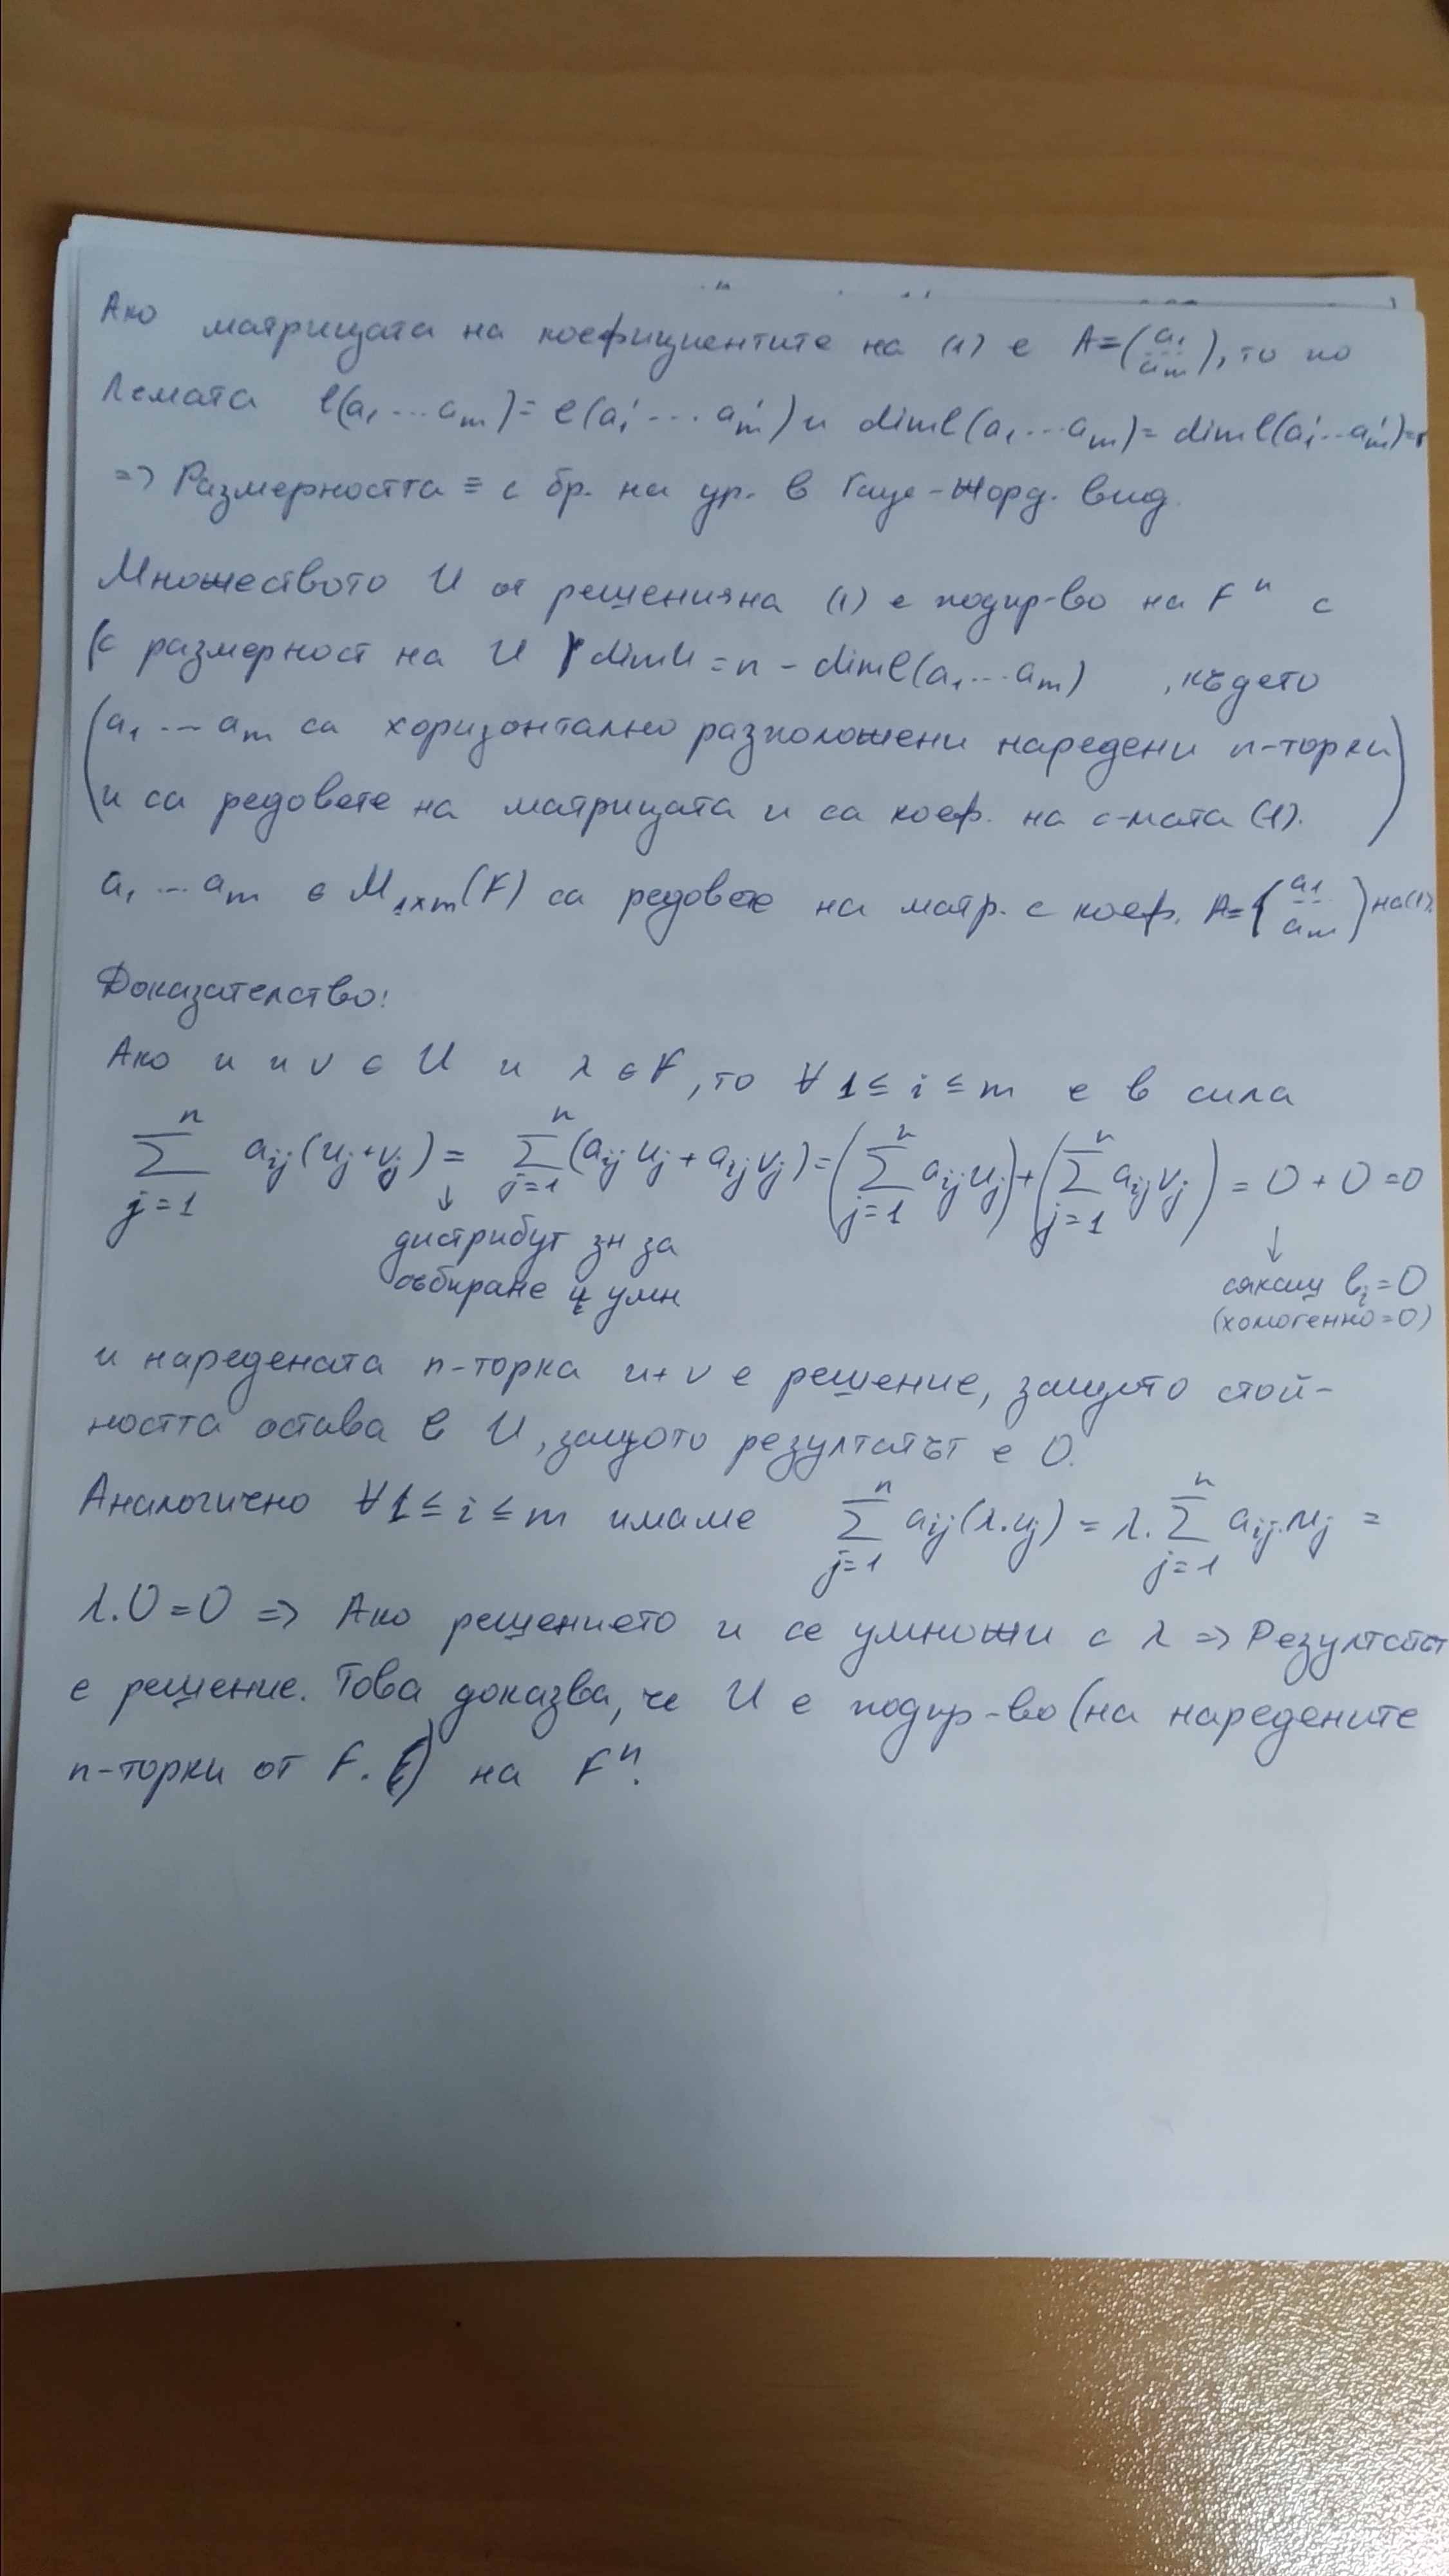 Ако матрицата на коефициентите на (1) е A=(a₁ --- aₘ), то по
Лемата l(a₁ ... aₘ)= l(a₁' ... aₘ') и diml(a₁ ... aₘ)= diml(a₁' ... aₘ')=r
=> Размерността ≡ с бр. на ур. в Гаус-Жорд. вид.
Множеството U от решенияна (1) е подпр-во на Fⁿ с
(с размерност на U dimU = n - diml(a₁ ... aₘ) , където
(a₁ --- aₘ са хоризонтално разположени наредени n-торки)
и са редовете на матрицата и са коеф. на с-мата (1).
a₁ --- aₘ ∈ M₁ₓₘ(F) са редовете на матр. с коеф. A=(a₁ --- aₘ) на (1).
Доказателство:
Ако u и v ∈ U и λ ∈ F, то ∀ 1 ≤ i ≤ m е в сила
∑ⁿⱼ₌₁ aᵢⱼ(uⱼ+vⱼ) = ∑ⁿⱼ₌₁ (aᵢⱼ uⱼ + aᵢⱼ vⱼ) = (∑ⁿⱼ₌₁ aᵢⱼ uⱼ) + (∑ⁿⱼ₌₁ aᵢⱼ vⱼ) = 0 + 0 = 0
↓ дистрибут зн за
събиране и умн
↓ bᵢ = 0
(хомогенно = 0)
и наредената n-торка u+v е решение, защото стой-
ността остава в U, защото резултатът е 0.
Аналогично ∀ 1 ≤ i ≤ m имаме ∑ⁿⱼ₌₁ aᵢⱼ(λ.uⱼ) = λ.∑ⁿⱼ₌₁ aᵢⱼ.uⱼ =
λ.0=0 => Ако решението u се умножи с λ => Резултатът
е решение. Това доказва, че U е подпр-во (на наредените
n-торки от F.) на Fⁿ.